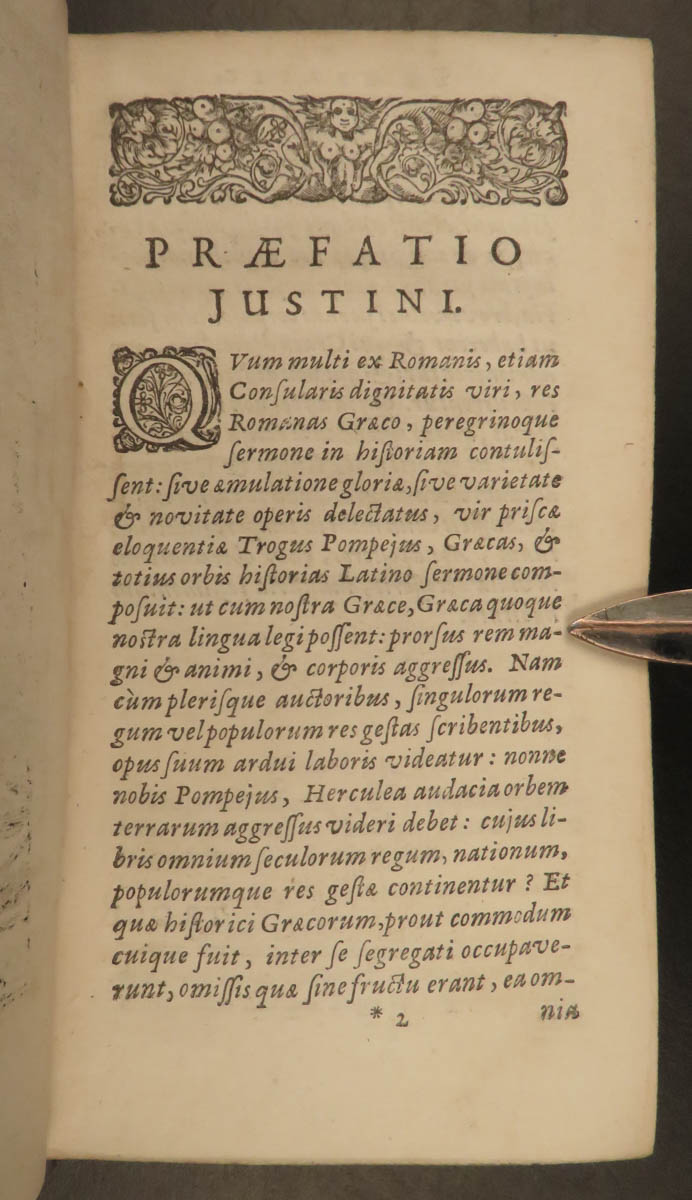 PRÆFATIO
JUSTINI.
QVum multi ex Romanis, etiam
Conſularis dignitatis viri, res
Romanas Græco, peregrinoque
ſermone in hiſtoriam contuliſ-
ſent: ſive æmulatione gloriæ, ſive varietate
& novitate operis delectatus, vir priſcæ
eloquentiæ Trogus Pompejus, Græcas, &
totius orbis hiſtorias Latino ſermone com-
poſuit: ut cum noſtra Græce, Græca quoque
noſtra lingua legi poſſent: prorſus rem ma-
gni & animi, & corporis aggreſſus. Nam
cùm pleriſque auctoribus, ſingulorum re-
gum vel populorum res geſtas ſcribentibus,
opus ſuum ardui laboris videatur: nonne
nobis Pompejus, Herculea audacia orbem
terrarum aggreſſus videri debet: cujus li-
bris omnium ſeculorum regum, nationum,
populorumque res geſtæ continentur? Et
quæ hiſtorici Græcorum, prout commodum
cuique fuit, inter ſe ſegregati occupave-
runt, omiſſis quæ ſine fructu erant, ea om-
* 2 nia